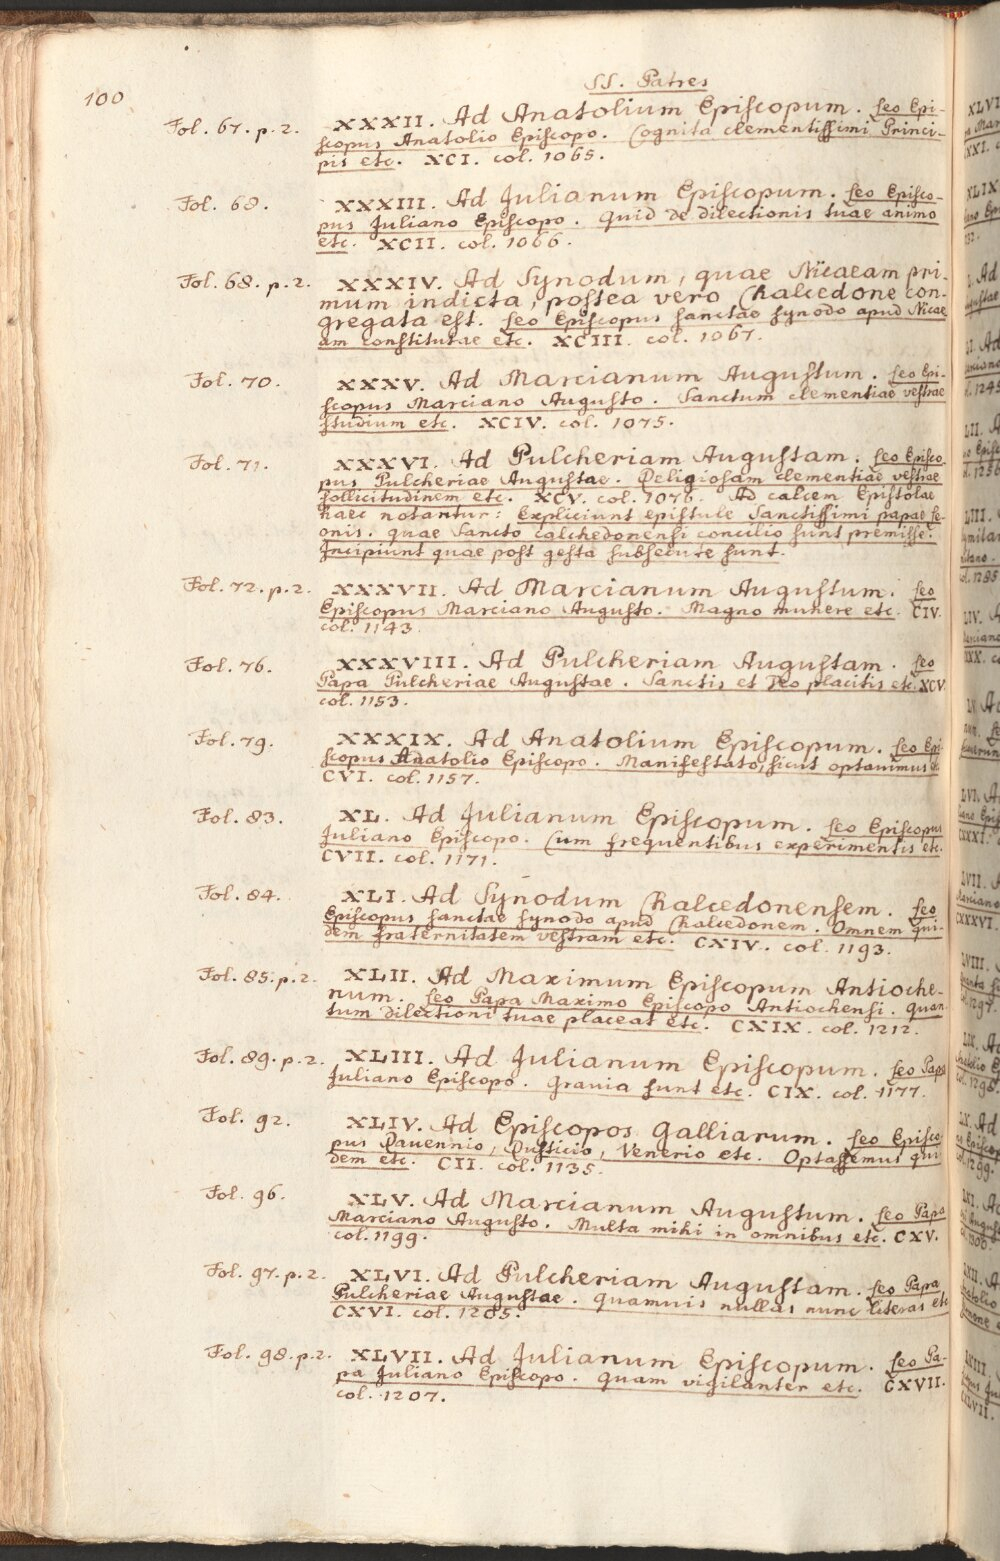 SS. Patres
100
Fol. 67. p. 2. XXXII. Ad Anatolium Episcopum. Leo Epi-
scopus Anatolio Episcopo. Cognita clementissimi Princi-
pis etc. XCI. col. 1065.
Fol. 68. XXXIII. Ad Julianum Episcopum. Leo Episco-
pus Juliano Episcopo. Quid de dilectionis tuae animo
etc. XCII. col. 1066.
Fol. 68. p. 2. XXXIV. Ad Synodum, quae Nicaeam pri-
mum indicta, postea vero Chalcedone con-
gregata est. Leo Episcopus sanctae synodo apud Nicae
am constitutae etc. XCIII. col. 1067.
Fol. 70. XXXV. Ad Marcianum Augustum. Leo Epi-
scopus Marciano Augusto. Sanctum clementiae vestrae
studium etc. XCIV. col. 1075.
Fol. 71. XXXVI. Ad Pulcheriam Augustam. Leo Episco
pus Pulcheriae Augustae. Religiosam clementiae vestrae
sollicitudinem etc. XCV. col. 1076. Ad calcem Epistolae
haec notantur: Expliciunt epistule Sanctissimi papae Le-
onis. quae Sancto calchedonensi concilio sunt premisse.
Incipiunt quae post gesta subsecute sunt.
Fol. 72. p. 2. XXXVII. Ad Marcianum Augustum. Leo
Episcopus Marciano Augusto. Magno munere etc. CIV.
col. 1143.
Fol. 76. XXXVIII. Ad Pulcheriam Augustam. Leo
Papa Pulcheriae Augustae. Sanctis et Deo placitis etc. XCV
col. 1153.
Fol. 79. XXXIX. Ad Anatolium Episcopum. Leo Epi
scopus Anatolio Episcopo. Manifestato, sicut optavimus
CVI. col. 1157.
Fol. 83. XL. Ad Julianum Episcopum. Leo Episcopus
Juliano Episcopo. Cum frequentibus experimentis etc.
CVII. col. 1171.
Fol. 84. XLI. Ad Synodum Chalcedonensem. Leo
Episcopus sanctae synodo apud Chalcedonem. Omnem qui-
dem fraternitatem vestram etc. CXIV. col. 1193.
Fol. 85. p. 2. XLII. Ad Maximum Episcopum Antioche-
num. Leo Papa Maximo Episcopo Antiochensi. Quan
tum dilectioni tuae placeat etc. CXIX. col. 1212.
Fol. 89. p. 2. XLIII. Ad Julianum Episcopum. Leo Papa
Juliano Episcopo. Gravia sunt etc. CIX. col. 1177.
Fol. 92. XLIV. Ad Episcopos Galliarum. Leo Episco
pus Ravennio, Rusticio, Venerio etc. Optassemus qui
dem etc. CII. col. 1135.
Fol. 96. XLV. Ad Marcianum Augustum. Leo Papa
Marciano Augusto. Multa mihi in omnibus etc. CXV.
col. 1199.
Fol. 97. p. 2. XLVI. Ad Pulcheriam Augustam. Leo Papa
Pulcheriae Augustae. Quamvis nullas nunc literas etc
CXVI. col. 1205.
Fol. 98. p. 2. XLVII. Ad Julianum Episcopum. Leo Pa-
pa Juliano Episcopo. Quam vigilanter etc. CXVII.
col. 1207.